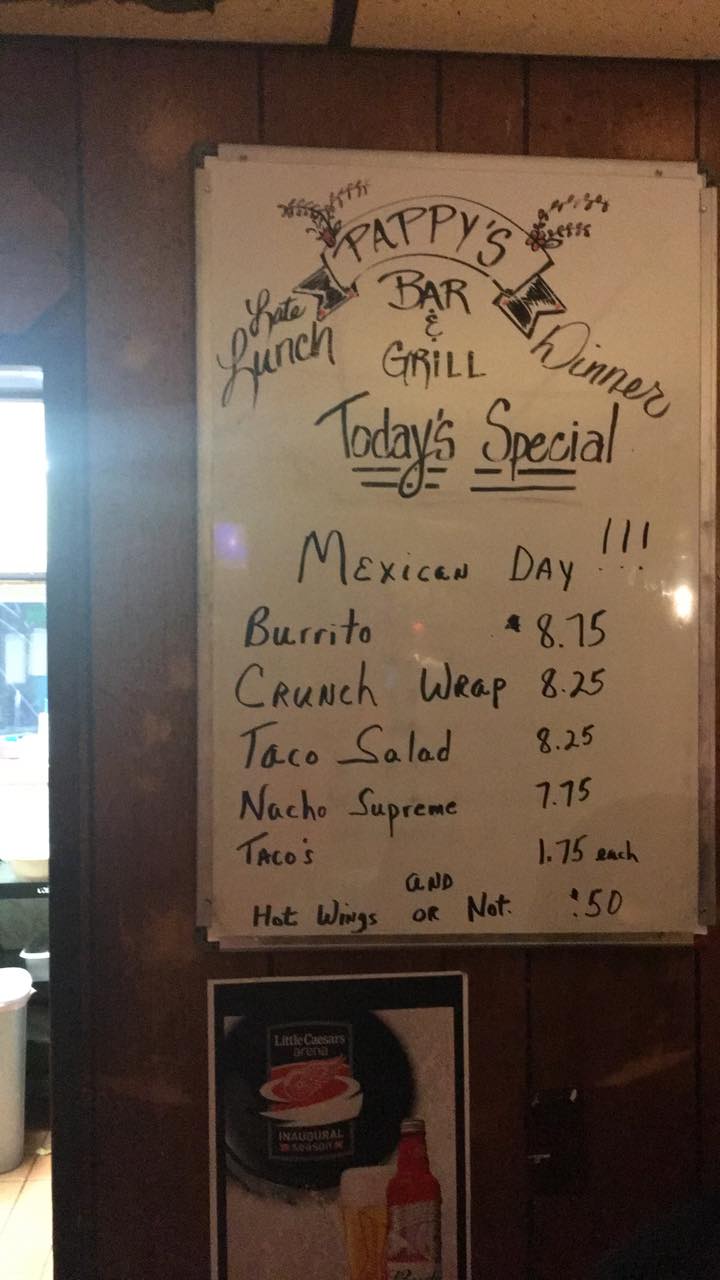 PAPPY'S
BAR
&
GRILL
Late
Lunch
Dinner
Today's Special
MEXICAN DAY !!!
Burrito 8.75
CRUNCH WRAP 8.25
Taco Salad 8.25
Nacho Supreme 7.75
TACO'S 1.75 each
AND
Hot Wings OR Not. .50
Little Caesars
arena
INAUGURAL
SEASON